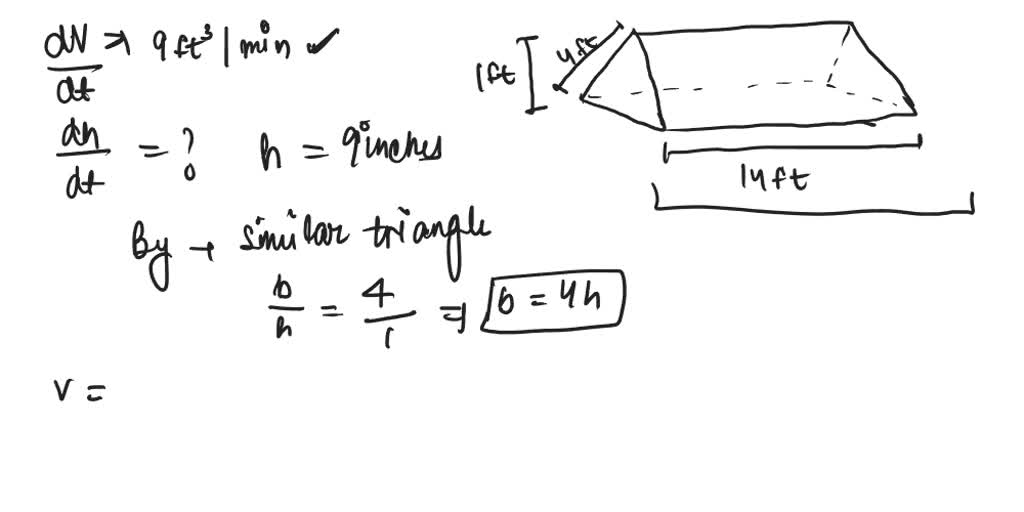 dV/dt → 9 ft³ | min ✓
dh/dt = ? h = 9 inches
By → similar triangle
b/h = 4/1 ⇒ b = 4h
V =
1ft
4ft
14ft